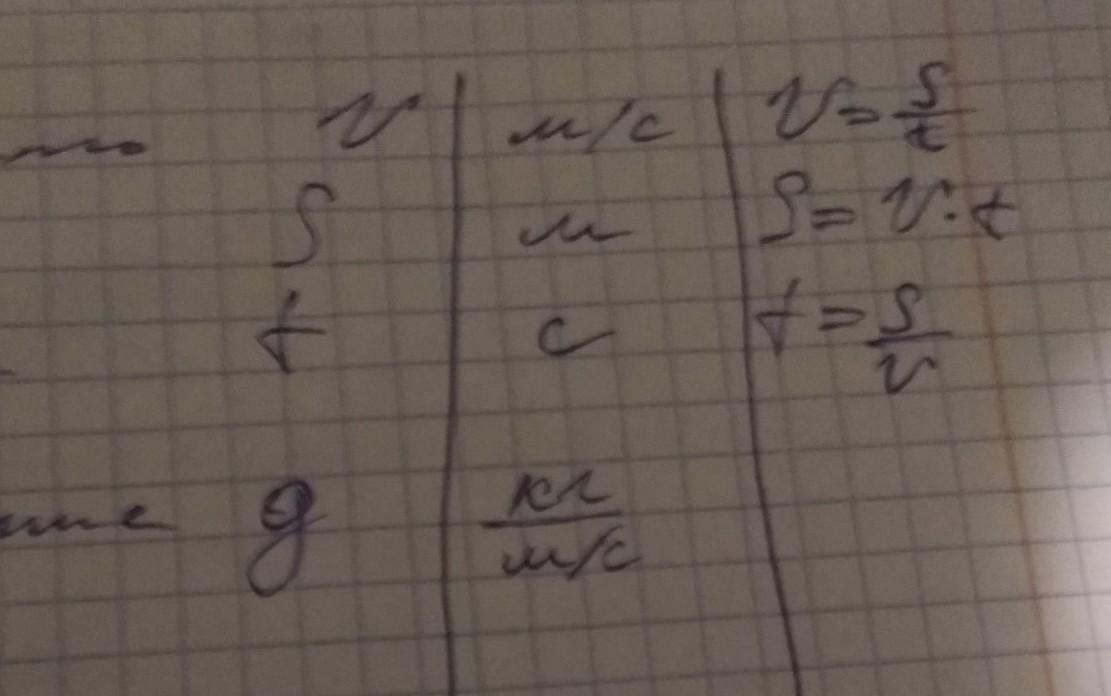 V м/с V = S/t
S м S = V · t
t с t = S/V
g кг/м/с